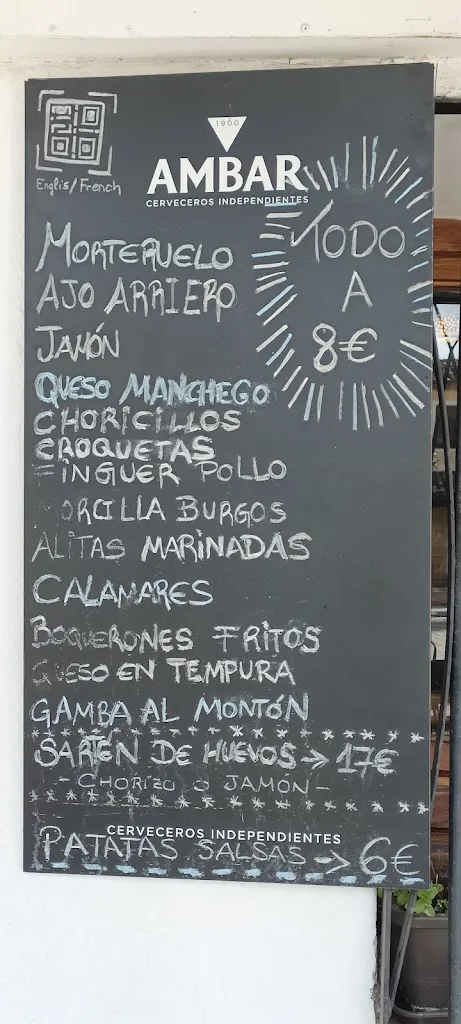 Englis/French
1900
AMBAR
CERVECEROS INDEPENDIENTES
TODO
A
8€
MORTERUELO
AJO ARRIERO
JAMÓN
QUESO MANCHEGO
CHORICILLOS
CROQUETAS
FINGUER POLLO
MORCILLA BURGOS
ALITAS MARINADAS
CALAMARES
BOQUERONES FRITOS
QUESO EN TEMPURA
GAMBA AL MONTÓN
SARTÉN DE HUEVOS → 17€
- CHORIZO O JAMÓN -
CERVECEROS INDEPENDIENTES
PATATAS SALSAS → 6€